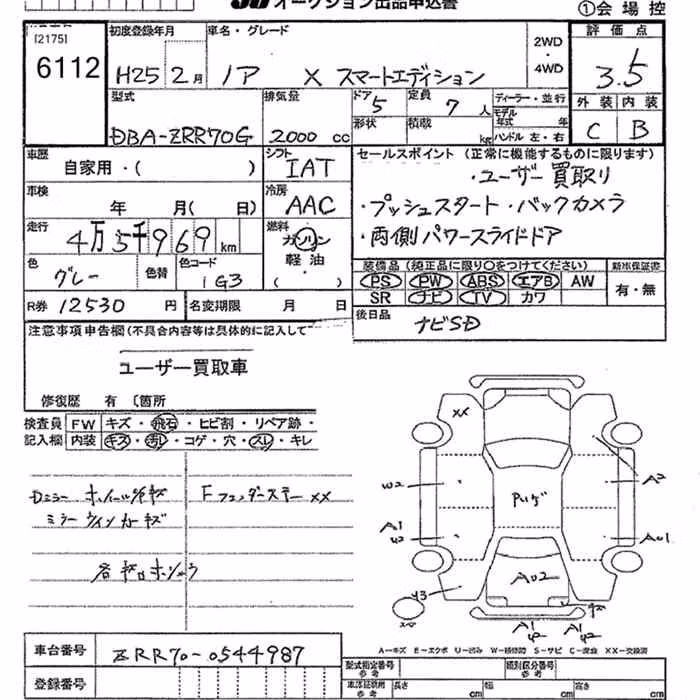 オークション出品申込書
①会場控
[2175]
6112
初度登録年月
H25 2月
車名・グレード
ノア X スマートエディション
2WD
・
4WD
評価点
3.5
外装 内装
C B
型式
DBA-ZRR70G
排気量
2000 cc
ドア 5
形状
定員 7 人
積載 kg
ディーラー・並行
モデル年式 年
ハンドル 左・右
車歴
自家用・( )
シフト
IAT
車検
年 月( 日)
冷房
AAC
走行
4万5千969km
燃料
ガソリン
軽油
( )
色
グレー
色替
色コード
1G3
R券 12530 円
名変期限 ( 月 / 日)
セールスポイント (正常に機能するものに限ります)
・ユーザー買取り
・プッシュスタート・バックカメラ
・両側パワースライドドア
装備品(純正品に限り○をつけてください)
PS PW ABS エアB AW
SR ナビ TV カワ
新車保証書
有・無
後日品
ナビSD
注意事項申告欄(不具合内容等は具体的に記入して
ユーザー買取車
修復歴 有 〔箇所
検査員
記入欄
FW キズ・飛石・ヒビ割・リペア跡・
内装 キズ・汚レ・コゲ・穴・スレ・キレ
Dミラー ホイール欠キズ
ミラーウインカーキズ
Fフェンダーステー xx
xx
W2
A1
U2
U3
A2
A01
A02
A1
U2
A1
U2
A-キズ E-エクボ U-凹み W-補修跡 S-サビ C-腐食 XX-交換済
車台番号 ZRR70-0544987
登録番号
型式指定番号
参考
類別区分番号
参考
車体証使用
参考
長さ cm 幅 cm 高さ cm